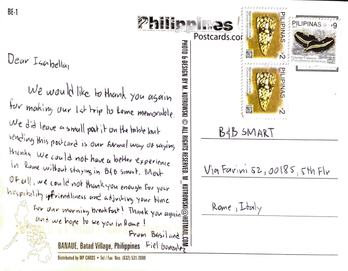 BE-1
Philippines
Postcards.com
Dear Isabella,
We would like to thank you again
for making our 1st trip to Rome memorable.
We did leave a small post it on the table but
sending this postcard is our formal way of saying
thanks. We could not have a better experience
in Rome without staying in B&B Smart. Most
of all, we could not thank you enough for your
hospitality & friendliness and adjusting your time
for our morning breakfast! Thank you again
and we hope to see you in Rome!
From Basil and
Fiel
BANAUE, Batad Village, Philippines
Distributed by MP CARDS • Tel / Fax No. (632) 531.2080
PHOTO & DESIGN BY M. KUTROWSKI © ALL RIGHTS RESERVED
PILIPINAS
2
PILIPINAS
2
PILIPINAS
9
B&B SMART
Via Farini 52, 00185, 5th Flr
Rome, Italy